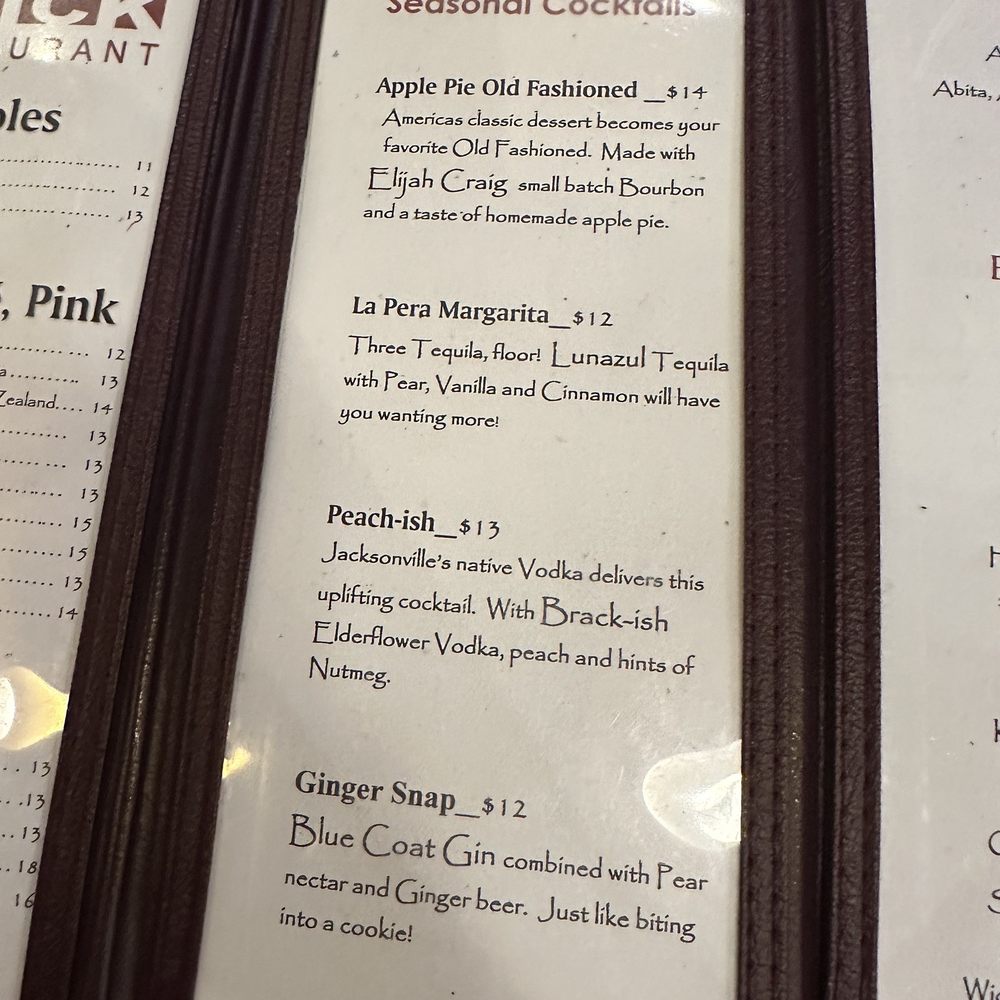 URANT
11
12
13
, Pink
12
13
Zealand.... 14
13
13
13
15
15
13
14
13
13
13
18
16
Seasonal Cocktails
Apple Pie Old Fashioned __$14
Americas classic dessert becomes your
favorite Old Fashioned. Made with
Elijah Craig small batch Bourbon
and a taste of homemade apple pie.
La Pera Margarita__$12
Three Tequila, floor! Lunazul Tequila
with Pear, Vanilla and Cinnamon will have
you wanting more!
Peach-ish__$13
Jacksonville's native Vodka delivers this
uplifting cocktail. With Brack-ish
Elderflower Vodka, peach and hints of
Nutmeg.
Ginger Snap__$12
Blue Coat Gin combined with Pear
nectar and Ginger beer. Just like biting
into a cookie!
Abita,